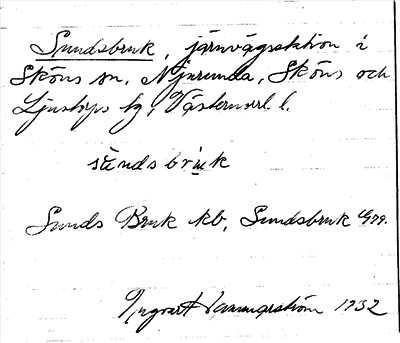 Sundsbruk, järnvägsstation i
Sköns sn, Njurunda, Sköns och
Ljustorps tg, Västernorrl. l.
sundsbruk
Sunds Bruk kb, Sundsbruk
Ingvar Hammarström 1932